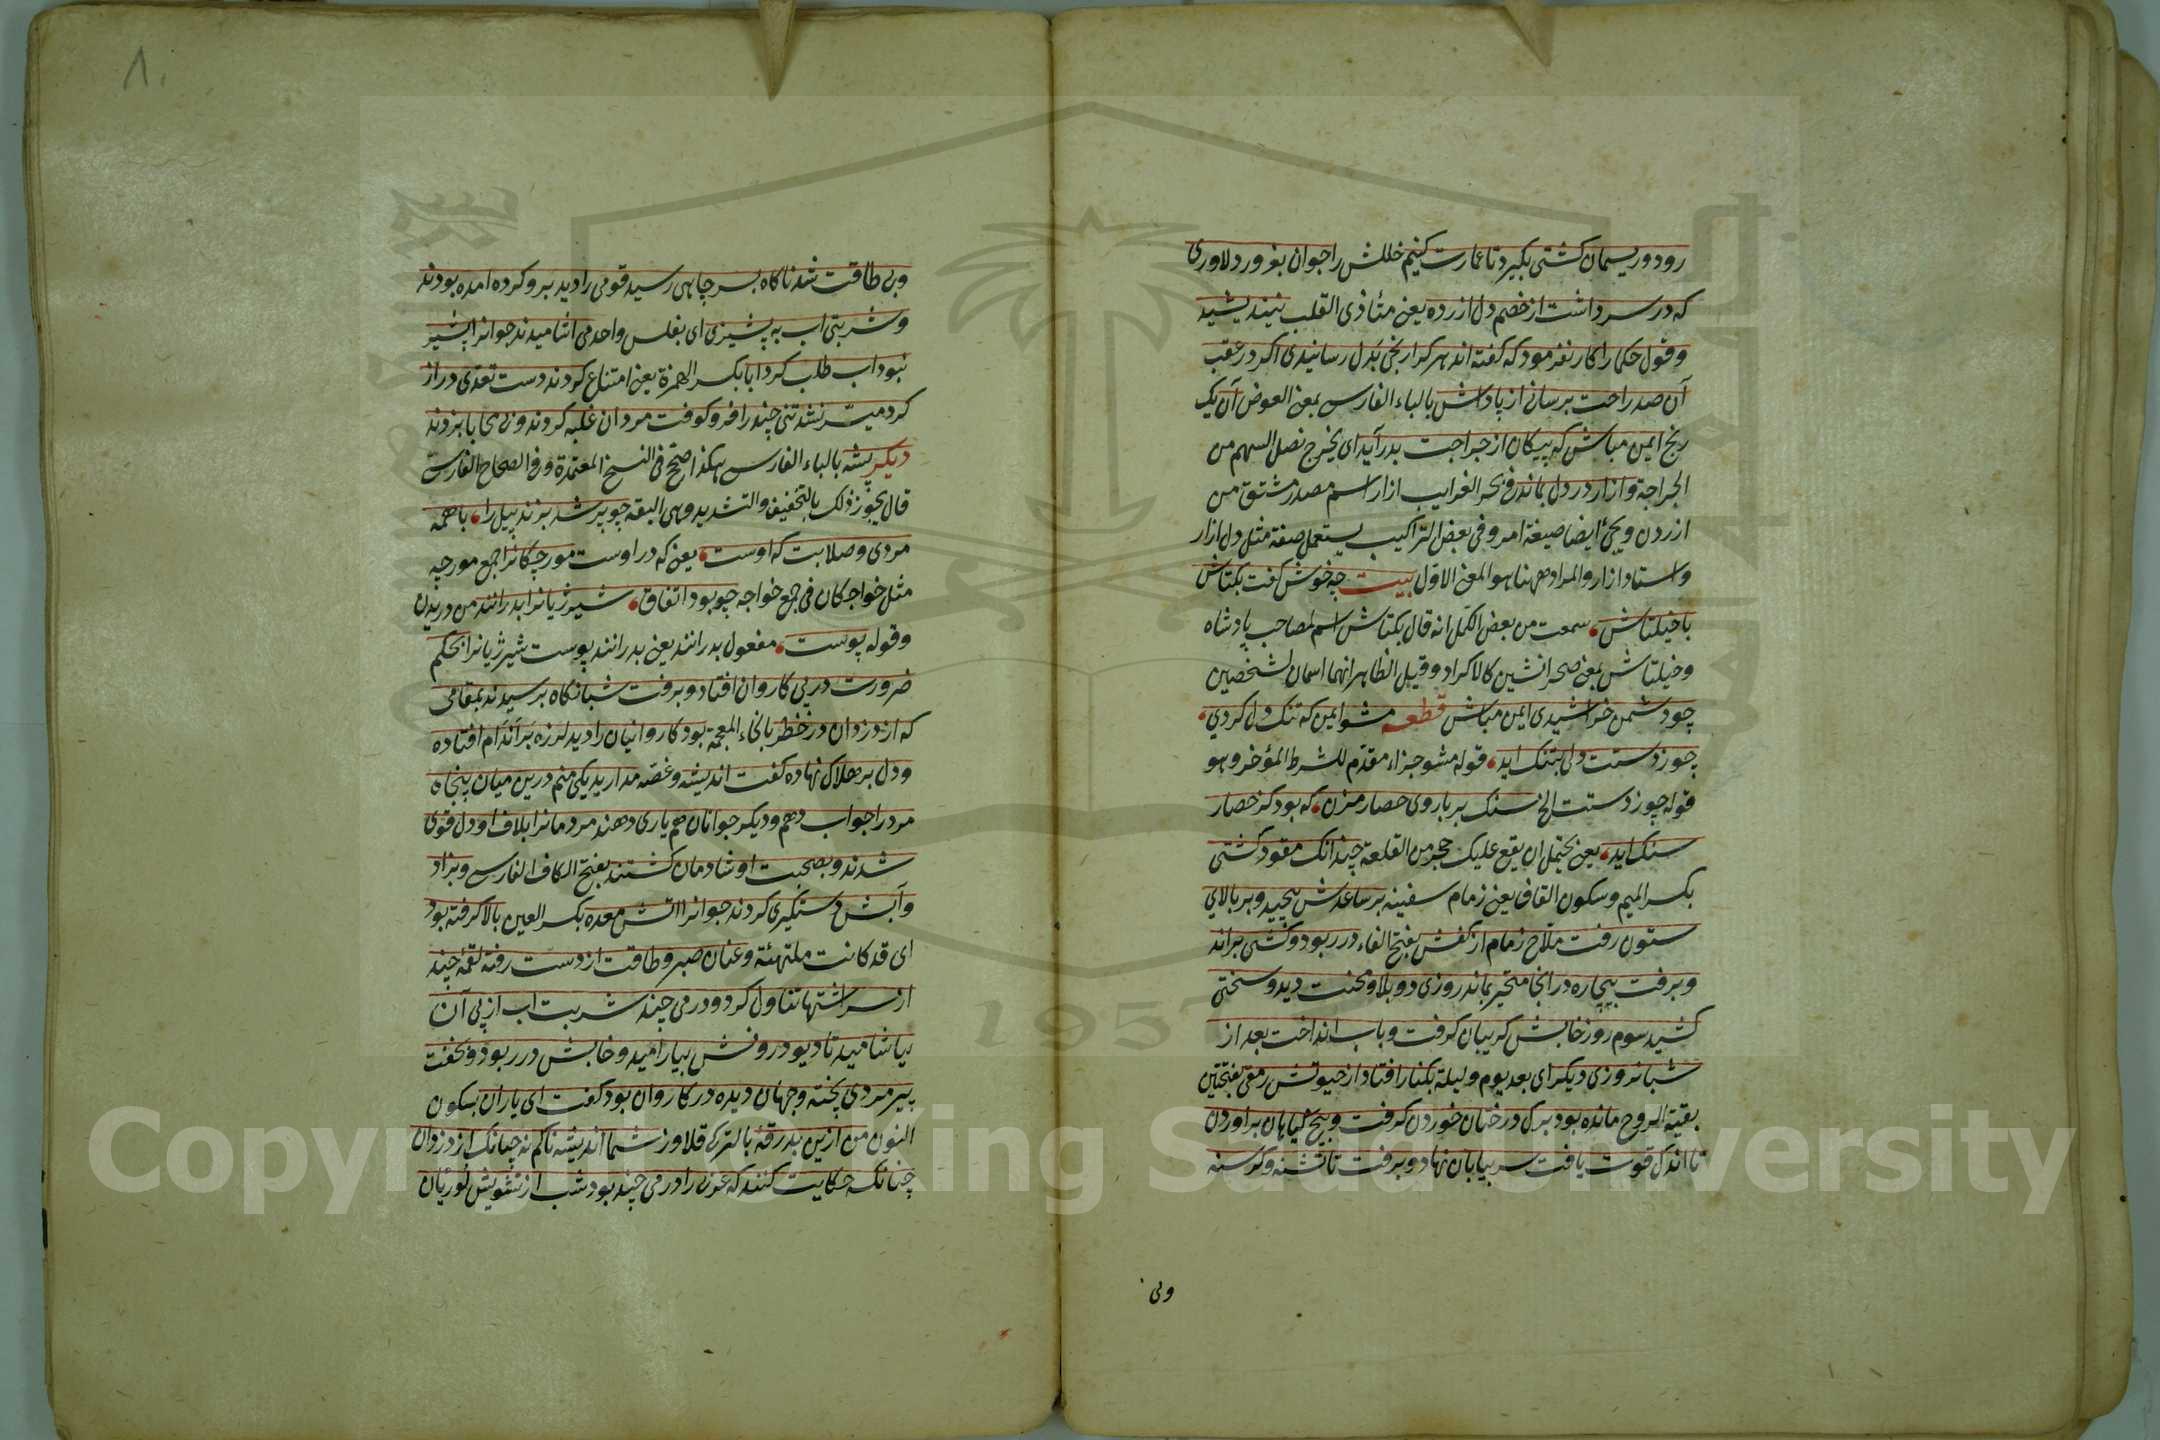 رود و ریسمان کشتی بکیرد تا عمارت کنیم خللش را جوان بغرور دلاوری
که در سر داشت از خصم دل ازرده یعنی متأذی القلب نیندیشید
و قول حکما را کار نفرمود که کفته اند هر کرا رنجی بدل رسانیدی اکر در عقب
آن صد راحت برسانی از پاداش بالباء الفارسی بمعنی العوض آن یک
رنج ایمن مباش که پیکان از جراحت بدر آید ای یخرج نصل السهم من
الجراحة و ازار در دل بماند و فی بحر الغرایب ازار اسم مصدر مشتق من
ازردن و یجئ ایضا صیغة امر و فی بعض التراکیب یستعمل صفة مثل دل ازار
و استاد ازار و المراد ههنا هو المعنی الاول بیت چه خوش کفت بکتاش
با خیلتاش سمعت من بعض الکمل انه قال بکتاش اسم لمصاحب پادشاه
و خیلتاش بمعنی صحرانشین کالاکراد و قیل الظاهر انهما اسمان لشخصین
چو دشمن خراشیدی ایمن مباش قطعه مشو ایمن که تنک دل کردی
چون ز دستت دلی بتنک اید قوله مشو جزاء مقدم للشرط المؤخر و هو
قوله چون ز دستت الخ سنک بر باروی حصار مزن که بود کز حصار
سنک اید یعنی یحتمل ان یقع علیک حجر من القلعة چندانک مقود کشتی
بکسر المیم و سکون القاف یعنی زمام سفینه بر ساعدش پیچید و بر بالای
ستون رفت ملاح زمام از کفش بفتح الفاء در ربود و کشتی براند
و برفت بیچاره در انجا متحیر بماند روزی دو بلا و محنت دید و سختی
کشید سوم روز خابش کریبان کرفت و باب انداخت بعد از
شبانروزی دیکر ای بعد یوم و لیلة بکنار افتاد از حیوتش رمقی بفتحتین
بقیة الروح مانده بود برک درختان خوردن کرفت و بیخ کیاهان براوردن
تا اندک قوت یافت سر ببیابان نهاد و برفت تا تشنه و کرسنه
وبی
٨٠
و بی طاقت شد ناکاه بسر چاهی رسید قومی را دید برو کرده امده بودند
و شربتی اب به پشیزی ای بفلس واحد می اشامیدند جوانرا پشیز
نبود اب طلب کرد ابا بکسر الهمزة یعنی امتناع کردند دست تعدی دراز
کرد میسر نشد تنی چند را فرو کوفت مردان غلبه کردند و بی بابا بزدند
دیکر پشه بالباء الفارسی هکذا صحح فی النسخ المعتمدة و فی الصحاح الفارسی
قال یجوز ذلک بالتخفیف و التشدید و هی البقة چو پر شد بزند پیل را با همه
مردی و صلابت که اوست یعنی که در اوست مورچکانرا جمع مورچه
مثل خواجکان فی جمع خواجه چو بود اتفاق شیر ژیانرا بدرانند من دریدن
و قوله پوست مفعول بدرانند یعنی بدرانند پوست شیر ژیانرا بحکم
ضرورت در پی کاروان افتاد و برفت شبانکاه برسیدند بمقامی
که از دزدان در خطر بالخاء المعجمة بود کاروانیان را دید لرزه بر اندام افتاده
و دل بر هلاک نهاده کفت اندیشه و غصه مدارید یکی منم درین میان پنجاه
مرد را جواب دهم و دیکر جوانان هم یاری دهند مردمانرا بلاف او دل قوی
شدند و بصحبت او شادمان کشتند بفتح الکاف الفارسی و بزاد
و آبش دستکیری کردند جوانرا اتش معده بکسر العین بالا کرفته بود
ای قد کانت ملتهبة و عنان صبر و طاقت از دست رفته لقمۀ چند
از سر اشتها تناول کرد و دمی چند شربت اب از پی آن
بیاشامید تا دیو درونش بیارامید و خابش در ربود و بخفت
پیر مردی پخته و جهان دیده در کاروان بود کفت ای یاران بسکون
النون من ازین بدرقۀ بالترکی قلاوز شما اندیشه ناکم نه چنانک از دزدان
چنانکه حکایت کنند که عربی را درمی چند بود شب از تشویش لوریان